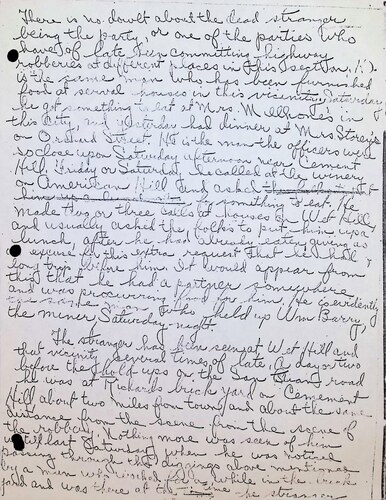 There is no doubt about the dead stranger
being the party, or one of the parties who
have of late been committing highway
robberies at different places in this section.
is the same man who has been furnished
food at serval houses in this vicinity. Saturday
he got something to eat at Mrs.
this city, and yesterday had dinner at Mrs Storeys
on Orchard Street. He is the man the officers were
so close upon Saturday afternoon near Cement
Hill. Friday or Saturday, he called at the winery
on American Hill and asked
for something to eat. He
made two or three calls at houses on Wet Hill
and usually asked the folks to put him up a
lunch, after he had already eaten, giving as
excuse for this extra request that he had a
long trip before him. It would appear from
this that he had a partner somewhere
and was procuring food for him. He is evidently
the same man who held up Wm Barry
the miner Saturday night.
The stranger has been seen at Wet Hill and
that vicinity several times of late. A day or two
before the hold ups on the San Juan road
he was at Richards brick yard on Cement
Hill about two miles from town, and about the same
distance from the scene from the scene of
the robbery. Nothing more was seen of him
until last Saturday, when he was noticed
passing through the diggings above mentioned
by a man who worked for while in the brick
yard and was there at the he stranger